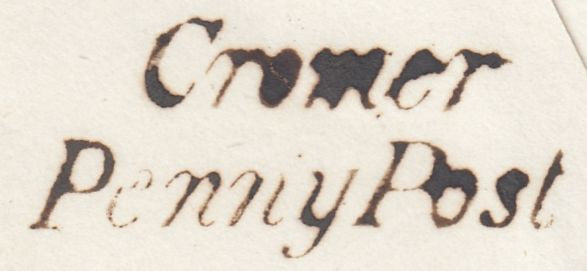 Cromer
Penny Post